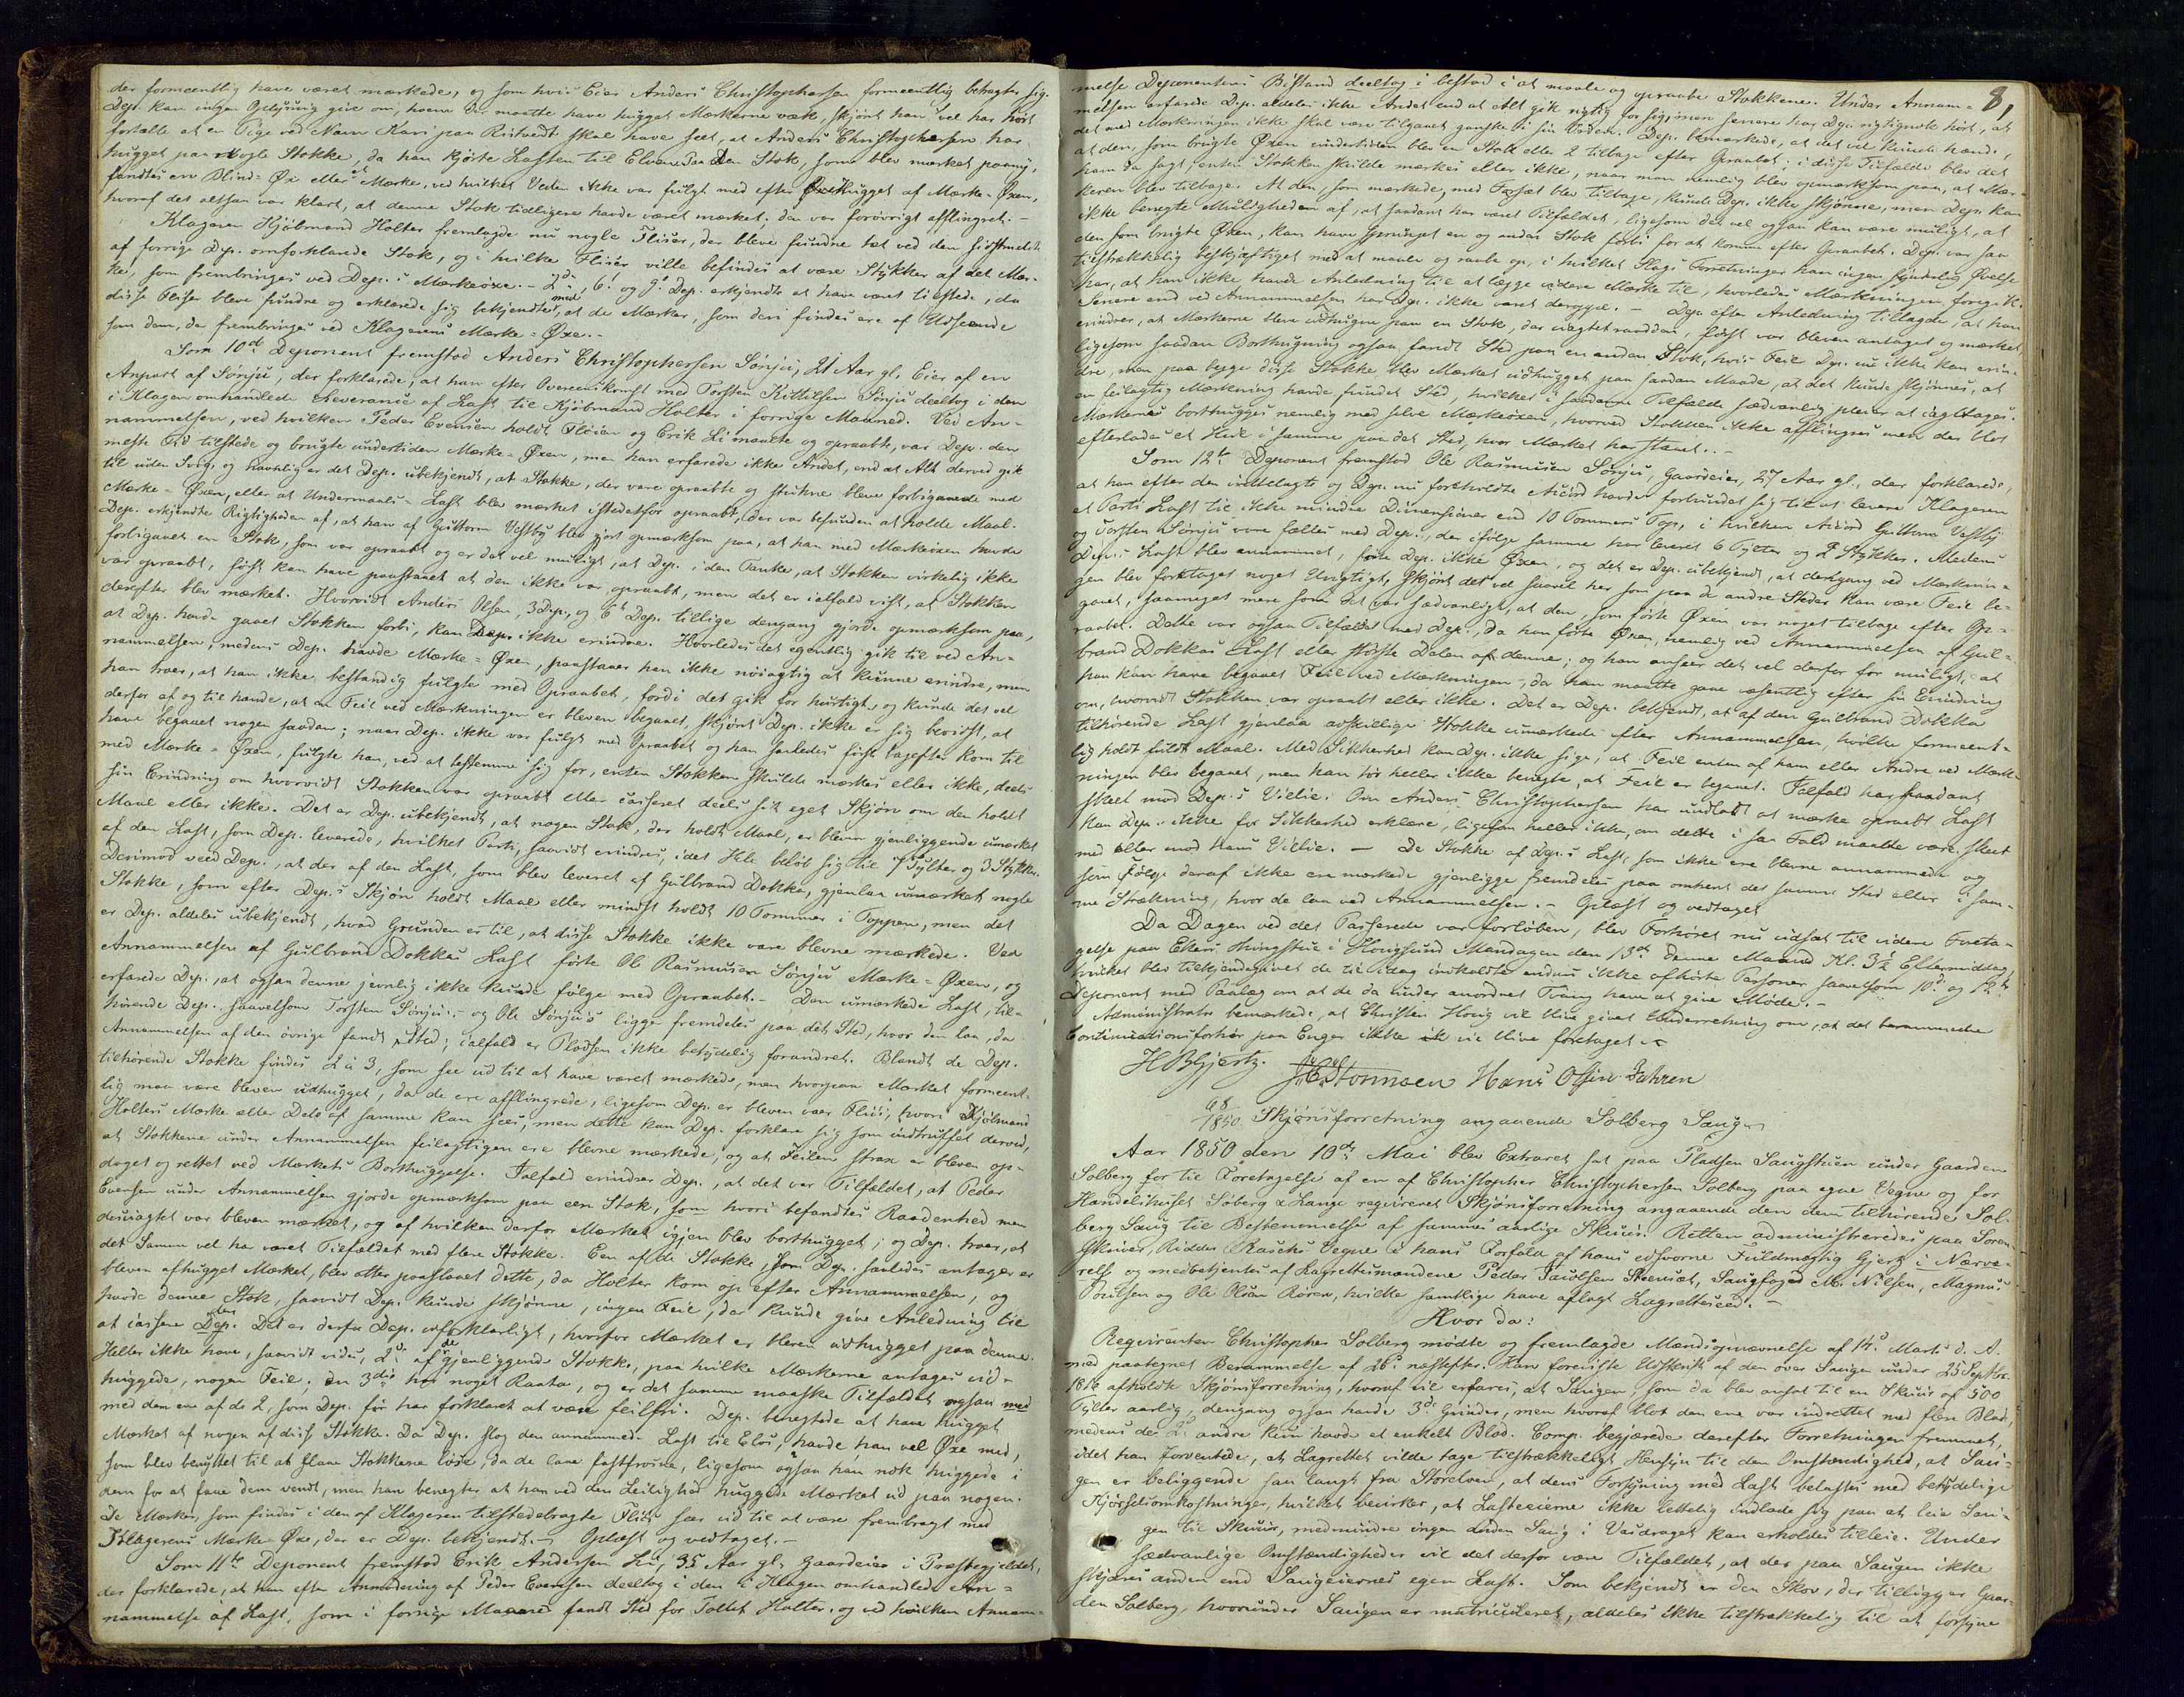 der formeentlig have været mærkede, og som hvis Eier Anders Christophersen formeentlig betragter sig.
Dep. kan ingen Oplysning give om, hvem der maatte have hugget Mærkerne væk, skjønt han vel har hørt
fortælle at en Pige ved Navn Kari paa Röstvedt skal have seet, at Anders Christophersen har
hugget paa Nogle Stokke, da han kjørte Lasten til Elven. Paa den Stok, som blev mærket paany,
fandtes en Blind-Øx eller et Mærke, ved hvilket Veden ikke var fulgt med efter Hugget af Mærke-Øxen,
hvoraf det altsaa var klart, at denne Stok tidligere havde været mærket; den var forøvrigt afflingret.-
Klageren Kjøbmand Holter fremlagde nu nogle Fliser, der bleve fundne tæt ved den sidstmeldte
af forrige Dep. omforklarede Stok, og i hvilke Fliser ville befindes at være Stykker af det Mær-
ke, som frembringes ved Dep.s Mærkeøxe.- 2de, 6t og 9d Dep. erkjendte at have været tilstede, da
disse Fliser bleve fundne og erklærede sig bekjendte med, at de Mærker, som deri findes ere af Udseende
som dem, der frembringes ved Klagerens Mærke-Øxe.-
Som 10de Deponent fremstod Anders Christophersen Sönju, 21 Aar gl. Eier af en
Anpart af Sönju, der forklarede, at han efter Overeenskomst med Torsten Kittilsen Sönju deeltog i den
i Klagen omhandlede Leverance af Last til Kjøbmand Holter i forrige Maaned. Ved An-
nammelsen, ved hvilken Peder Evensen holdt Fløien og Erik Li maalte og opraabt, var Dep. den
meste Tid tilstede og brugte undertiden Mærke-Øxen, men han erfarede ikke Andet, end at Alt derved gik
til uden Svig, og navnlig er det Dep. ubekjendt, at Stokke, der vare opraabte og stukne bleve forbigaaede med
Mærke-Øxen, eller at Undermaals-Last blev mærket istedetfor opraabt, der var befunden at holde Maal.
Dep. erkjendte Rigtigheden af, at han af Guttorm Vestby blev gjort opmærksom paa, at han med Mærkeøxen havde
forbigaaet en Stok, som var opraabt og er det vel muligt, at Dep. i den Tanke, at Stokken virkelig ikke
var opraabt, først kan have paastaaet at den ikke var opraabt, men det er ialfald vist, at Stokken
derefter blev mærket. Hvorvidt Anders Olsen, 3 Dep., og 6te Dep. tillige dengang gjorde opmærksom paa,
at Dep. havde gaaet Stokken forbi, kan Dep. ikke erindre. Hvorledes det egentlig gik til ved An-
nammelsen, medens Dep. havde Mærke-Øxen, paastaaer han ikke nøiagtig at kunne erindre, men
han troer, at han ikke bestandig fulgte med Opraabet, fordi det gik for hurtigt, og kunde det vel
derfor af og til hænde, at en Feil ved Mærkningen er bleven begaaet, skjønt Dep. ikke er sig bevidst, at
have begaaet nogen saadan; naar Dep. ikke var fulgt med Opraabet og han saaledes først bagefter kom til
med Mærke-Øxen, fulgte han, ved at bestemme sig for, enten Stokken skulde mærkes eller ikke, deels
sin Erindring om hvorvidt Stokken var opraabt eller casseret deels sit eget Skjøn om den holdt
Maal eller ikke. Det er Dep. ubekjendt, at nogen Stok, der holdt Maal, er bleven gjenliggende umærket
af den Last, som Dep. leverede, hvilket Parti, saavidt erindres, idet Hele beløb sig til 7 Tylter og 3 Stykker.
Derimod veed Dep., at der af den Last, som blev leveret af Gulbrand Dokka, gjenlaa umærket nogle
Stokke, som efter Dep.s Skjøn holdt Maal eller mindst holdt 10 Tommer i Toppen, men det
er Dep. aldeles ubekjendt, hvad Grunden er til, at disse Stokke ikke vare blevne mærkede. Ved
Annammelsen af Gulbrand Dokkas Last førte Ole Rasmusen Sönju Mærke-Øxen, og
erfarede Dep., at ogsaa denne jevnlig ikke kunde følge med Opraabet.- Den umærkede Last, til-
hørende Dep. saavelsom Torsten Sönju.- og Ole Sönju's ligge fremdeles paa det Sted, hvor den laa, da
Annammelsen af den øvrige fandt Sted; ialfald er Pladsen ikke betydelig forandret. Blandt de Dep.
tilhørende Stokke findes 2 à 3, som see ud til at have været mærkede, men hvorpaa Mærket formeent-
lig maa være bleven udhugget, da de ere afflingrede, ligesom Dep. er bleven vaer Fliis, hvori Kjøbmand
Holters Mærke eller Dele af samme kan sees, men dette kan Dep. forklare sig som indtruffet derved,
at Stokkene under Annammelsen feilagtigen ere blevne mærkede, og at Feilen strax er bleven op-
daget og rettet ved Mærkets Borthuggelse. Ialfald erindrer Dep., at det var Tilfældet, at Peder
Evensen under Annammelsen gjorde opmærksom paa een Stok, som hvori befandtes Raadenhed men
desuagtet var bleven mærket, og af hvilken derfor Mærket igjen blev borthugget; og Dep. troer, at
det Samme vel har været Tilfældet med flere Stokke. Een af de Stokke, som Dep. saaledes antager er
bleven afhugget Mærket, blev etter paastaaet dette, da Holter kom op efter Annammelsen, og
havde denne Stok, saavidt Dep. kunde skjønne, ingen Feil, der kunde give Anledning til
at cassere den. Det er derfor Dep. uforklarligt, hvorfor Mærket er bleven udhugget paa denne.
Heller ikke have, saavidt vides, 2de af de gjenliggende Stokke, paa hvilke Mærkerne antages ud-
huggede, nogen Feil; den 3die har noget Raata, og er det samme maaske Tilfældet ogsaa med
med den ene af de 2, som Dep. før har forklaret at være feilfri. Dep. benegtede at have hugget
Mærket af nogen af disse Stokke. Da Dep. slog den annammede Last til Elvs, havde han vel Øxe med,
som blev benyttet til at slaae Stokkene løse, da de laae fastfrosne, ligesom ogsaa han nok huggede i
dem for at faae dem vendt, men han benegter at han ved den Leilighed huggede Mærket ud paa nogen.
De Mærker, som findes i den af Klageren tilstedebragte Fliis seer ud til at være frembragt med
Klagerens Mærke-Øxe, der er Dep. bekjendt.- Oplæst og vedtaget.-
Som 11te Deponent fremstod Erik Andersen Li, 35 Aar gl., Gaardeier i Præstegjeldet,
der forklarede, at han efter Anmodning af Peder Evensen deeltog i den i Klagen omhandlede An-
nammelse af Last, som i forrige Maaned fandt Sted for Tollef Holter, og ved hvilken Annam-
8,
melse Deponentens Bistand deeltog i bestod i at maale og opraabe Stokkene. Under Annam-
melsen erfarede Dep. aldeles ikke Andet end at Alt gik rigtig for sig, men senere har Dep. rigtignok hørt, at
det med Mærkningen ikke skal være tilgaaet ganske i sin Orden. Dep. bemærkede, at det vel kunde hænde,
at den, som brugte Øxen undertiden blev en Stok eller 2 tilbage efter Opraabet; i disse Tilfælde blev det
ham da sagt, enten Stokken skulde mærkes eller ikke, naar man nemlig blev opmærksom paa, at Mær-
keren blev tilbage. At den, som mærkede, med Forsæt blev tilbage, kunde Dep. ikke skjønne, men Dep. kan
ikke benegte Muligheden af, at saadant har været Tilfældet, ligesom det vel ogsaa kan være muligt, at
den som brugte Øxen, kan have sprunget en og anden Stok forbi for at komme efter Opraabet. Dep. var saa
tilstrækkelig beskjæftiget med at maale og raabe op, i hvilket Slags Forretninger han ingen synderlig Øvelse
har, at han ikke havde Anledning til at lægge videre Mærke til, hvorledes Mærkningen foregik.
Senere end ved Annammelsen har Dep. ikke været deroppe. - Dep. efter Anledning tillagde, at han
erindrer, at Mærkerne bleve udhugne paa en Stok, der uagtet raadden, først var bleven antaget og mærket,
ligesom saadan Borthugning ogsaa fandt Sted paa en anden Stok, hvis Feil Dep. nu ikke kan erin-
dre, men paa begge disse Stokke blev Mærket udhugget paa saadan Maade, at det kunde skjønnes, at
en feilagtig Mærkning havde fundet Sted, hvilket i saadanne Tilfælde sædvanlig pleier at iagttages.
Mærkerne borthugges nemlig med selve Mærkeøxen, hvorved Stokken ikke afflingres men der blot
efterlades et Hul i samme paa det Sted, hvor Mærket har staaet..-
Som 12te Deponent fremstod Ole Rasmusen Sönju, Gaardeier, 27 Aar gl., der forklarede,
at han efter den irettelagte og Dep. nu foreholdte Accord havde forbundet sig til at levere Klageren
et Parti Last til ikke mindre Dimensioner end 10 Tommers Top, i hvilken Accord Guttorm Vestby
og Torsten Sönju vare fælles med Dep., der ifølge samme har leveret 6 Tylter og 2 Stykker. Medens
Dep.s Last blev annammet, førte Dep. ikke Øxen, og det er Dep. ubekjendt, at dengang ved Mærknin-
gen blev foretaget noget Urigtigt, skjønt det vel saavel her som paa de andre Steder kan være Feil be-
gaaet, saameget mere som det var sædvanligt, at den, som førte Øxen, var noget tilbage efter Op-
raabet. Dette var ogsaa Tilfældet med Dep., da han førte Øxen, nemlig ved Annammelsen af Gul-
brand Dokkas Last eller største Delen af denne; og han anseer det vel derfor for muligt, at
han kan have begaaet Feil ved Mærkningen, da han maatte gaae væsentlig efter sin Erindring
om, hvorvidt Stokken var opraabt eller ikke. Det er Dep. bekjendt, at af den Gulbrand Dokka
tilhørende Last gjenlaa adskillige Stokke umærkede efter Annammelsen, hvilke formeent-
lig holdt fuldt Maal. Med Sikkerhed kan Dep. ikke sige, at Feil enten af ham eller Andre ved Mærk-
ningen blev begaaet, men han tør heller ikke benegte, at Feil er begaaet. Ialfald har saadant
skeet mod Dep.s Villie. Om Anders Christophersen har undladt at mærke opraabt Last
kan Dep. ikke for Sikkerhed erklære, ligesom heller ikke, om dette i saa Fald maatte være skeet
med eller mod hans Villie. - De Stokke af Dep.s Last, som ikke ere blevne annammede og
som Følge deraf ikke ere mærkede gjenligge fremdeles paa omtrent det samme Sted eller i sam-
me Strækning, hvor de laa ved Annammelsen.- Oplæst og vedtaget
Da Dagen ved det Passerede var forløben, blev Forhøret nu udsat til videre Foreta-
gelse paa Ekers Thingstue i Hougsund Mandagen den 13de denne Maaned Kl. 3½ Eftermiddag,
hvilket blev tilkjendegivet de til idag indkaldte endnu ikke afhørte Personer saavelsom 10de og 12te
Deponent med Paalæg om at de da under anordnet Tvang have at give Møde.-
Administrator bemærkede, at Christen Houg vil blive givet Underretning om, at det berammede
Continuationsforhør paa Enger ikke vil blive foretaget.
H Bhjertz. J. C. Stormoen Hans Olsen Fahren
68/1850. Skjønsforretning angaaende Solberg Saug
Aar 1850 den 10de Mai blev Extraret sat paa Pladsen Saugstuen under Gaarden
Solberg for til Foretagelse af en af Christopher Christophersen Solberg paa egne Vegne og for
Handelshuset Söberg & Lange requireret Skjønsforretning angaaende den dem tilhørende Sol-
berg Saug til Bestemmelse af sammes aarlige Skuur. Retten administreredes paa Soren-
skriver, Ridder Raschs Vegne i hans Forfald af hans edsvorne Fuldmægtig Gjerz i Nærvæ-
relse og medbetjentes af Laugrettesmændene Peder Jacobsen Steensæt, Saugfoged M. Nilsen, Magnus
Poulsen og Ole Olsen Røren, hvilke samtlige have aflagt Laugretteseed.-
Hvor da:
Requirenten Christopher Solberg mødte og fremlagde Mændsopnævnelse af 14de Marts d. A.
med paategnet Berammelse af 26de næstefter. Han foreviste Udskrift af den over Saugen under 25 Septbr.
1816 afholdte Skjønsforretning, hvoraf vil erfares, at Saugen, som da blev ansat til en Skuur af 500
Tylter aarlig, dengang ogsaa havde 3de Grinder, men hvoraf blot den ene var indrettet med flere Blad,
medens de 2de andre kun havde et enkelt Blad. Comp. begjærede derefter Forretningen fremmet,
idet han forventede, at Laugrettet vilde tage tilstrækkeligt Hensyn til den Omstændighed, at Sau-
gen er beliggende saa langt fra Storelven, at dens Forsyning med Last belastes med betydelige
Kjørselsomkostninger, hvilket bevirker, at Lasteeierne ikke lettelig indlade sig paa at leie Sau-
gen til Skuur, medmindre ingen anden Saug i Vasdraget kan erholdes tilleie. Under
sædvanlige Omstændigheder vil det derfor være Tilfældet, at der paa Saugen ikke
skjæres anden end Saugeiernes egen Last. Som bekjendt er den Skov, der tilligger Gaar-
den Solberg, hvorunder Saugen er matriculeret, aldeles ikke tilstrækkelig til at forsyne